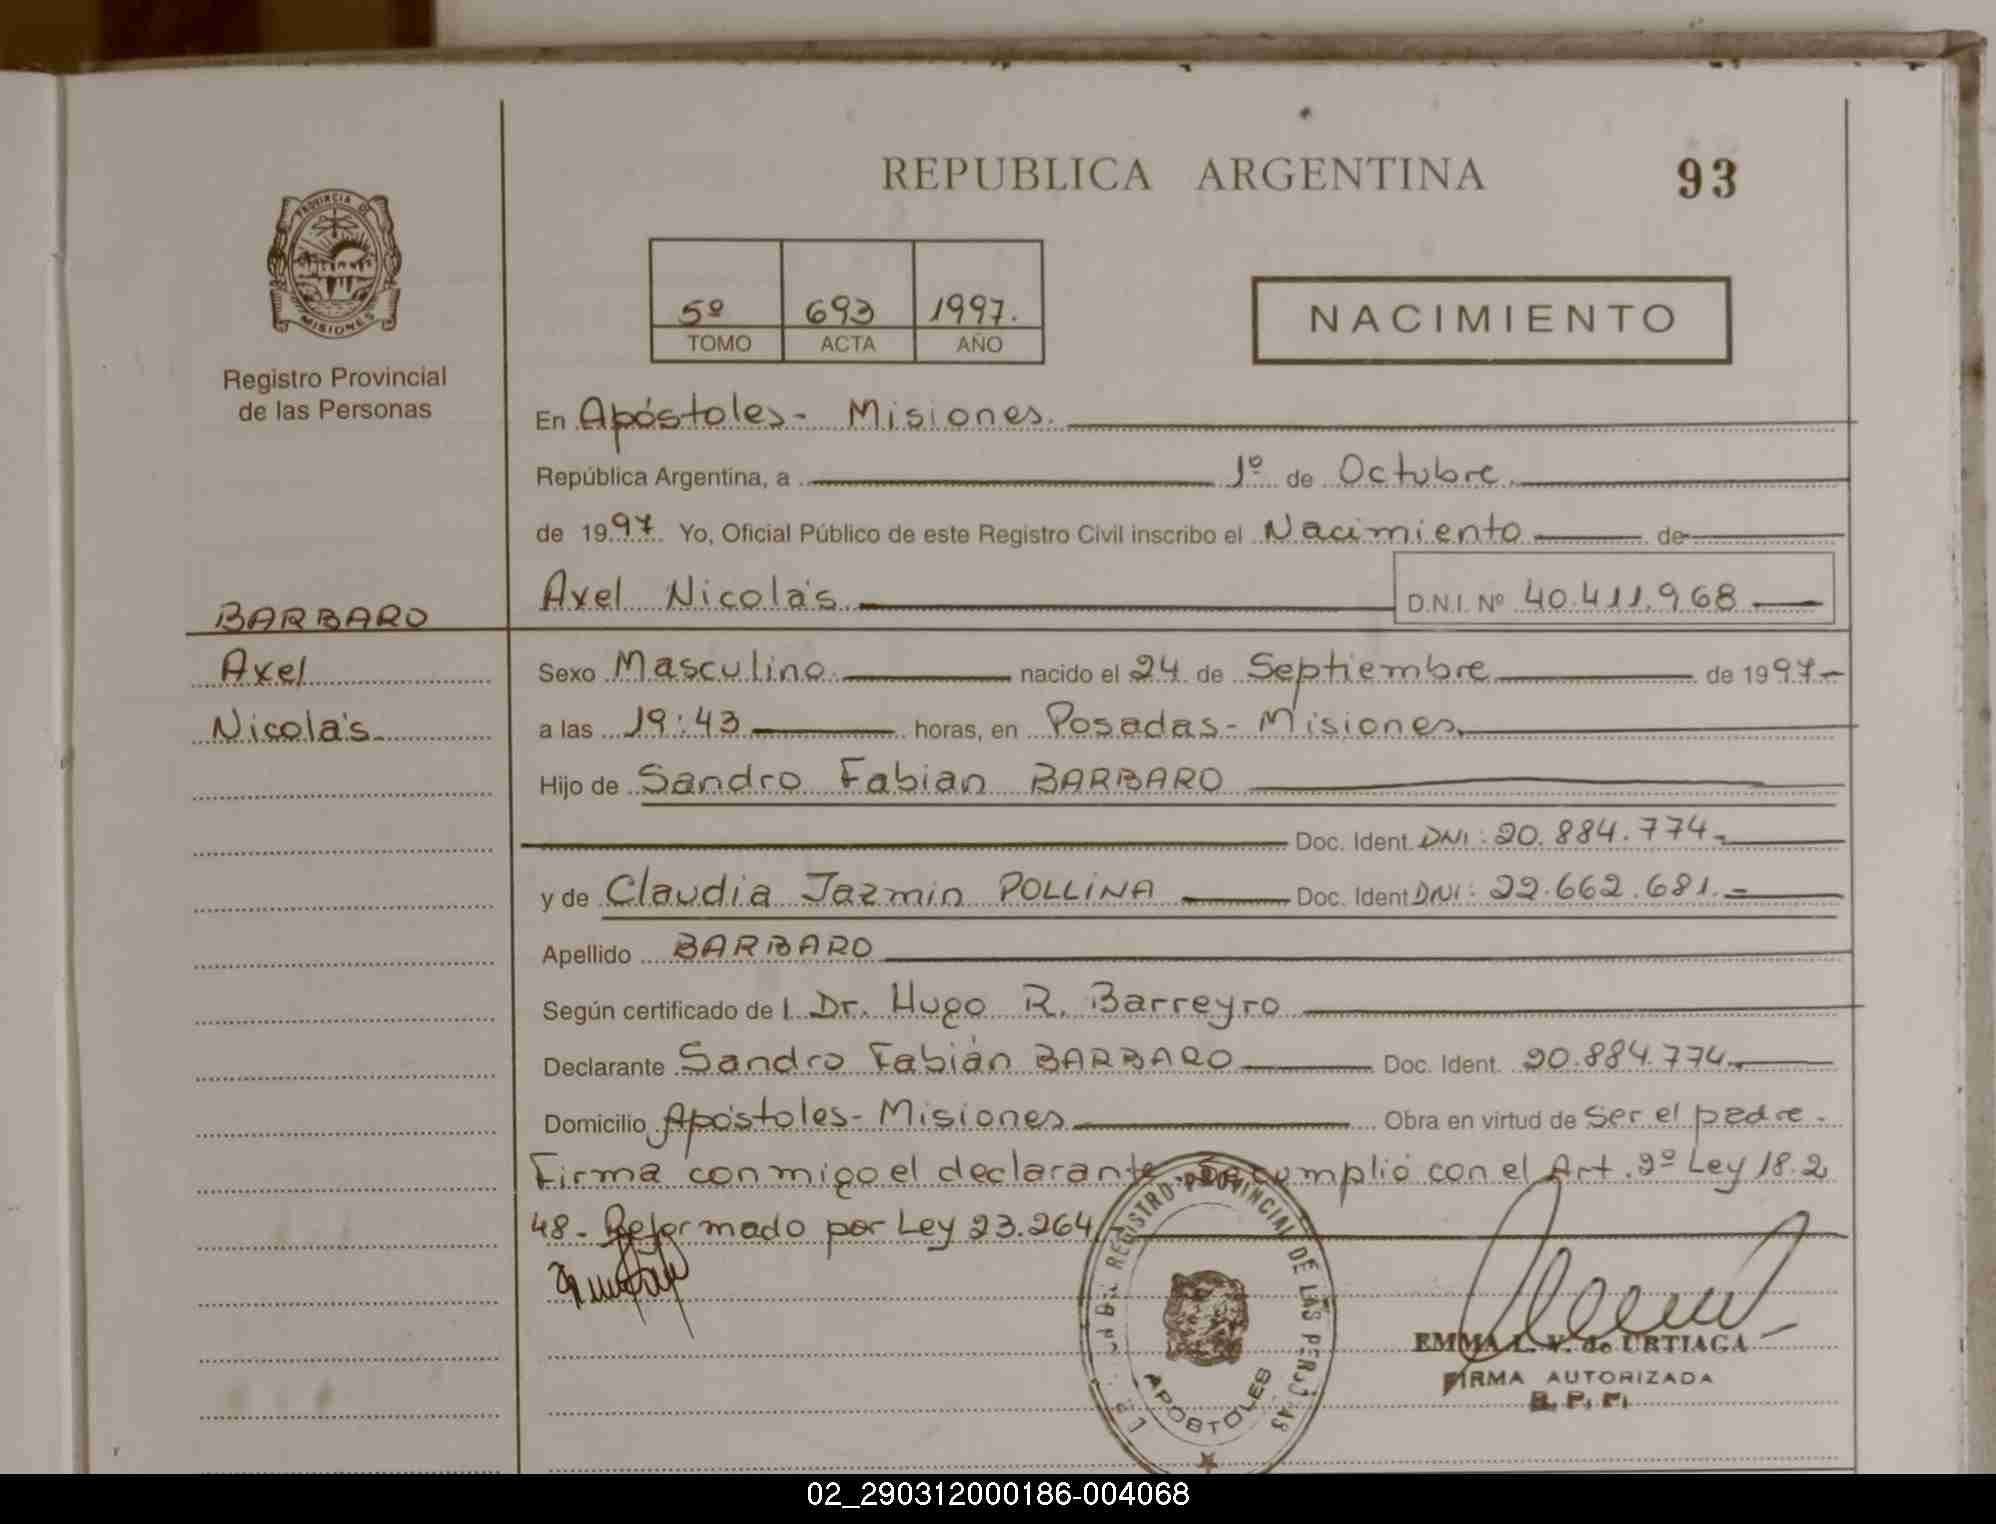 REPUBLICA ARGENTINA
93
PROVINCIA DE
MISIONES
Registro Provincial
de las Personas
5º 693 1997.
TOMO ACTA AÑO
NACIMIENTO
En Apóstoles - Misiones.
República Argentina, a 1º de Octubre
de 1997 Yo, Oficial Público de este Registro Civil inscribo el Nacimiento de
BARBARO
Axel Nicolás D.N.I. Nº 40.411.968
Axel
Sexo Masculino nacido el 24 de Septiembre de 1997-
Nicolás
a las 19:43 horas, en Posadas - Misiones
Hijo de Sandro Fabian BARBARO
Doc. Ident. DNI: 20.884.774-
y de Claudia Jazmin POLLINA Doc. Ident DNI: 22.662.681.-
Apellido BARBARO
Según certificado de l Dr. Hugo R. Barreyro
Declarante Sandro Fabián BARBARO Doc. Ident. 20.884.774
Domicilio Apóstoles - Misiones Obra en virtud de ser el padre.
Firma conmigo el declarante. Se cumplió con el Art. 2º Ley 18.2
48- Reformado por Ley 23.264
REGISTRO PROVINCIAL DE LAS PERSONAS
APOSTOLES
EMMA L. V. de URTIAGA
FIRMA AUTORIZADA
R. P. P.
02_290312000186-004068